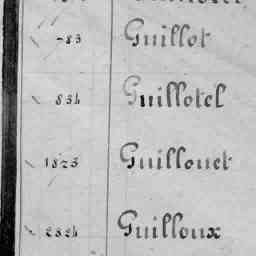 -83 Guillot
834 Guillotel
1823 Guillouet
2824 Guilloux